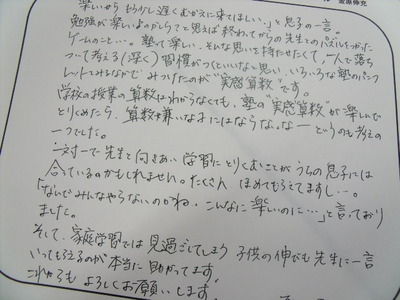 楽しいからもう少し遅くむかえに来てほしい、」と息子の一言。
勉強が楽しいよのかしらと思えば終わってからの先生とのパズルをつかった
ゲームのこと…。塾って楽しい、そんな思いを持たせたくて、一人で落ち
ついて考える（深く）習慣がつくといいなと思い、いろいろな塾のパンフ
レットとみるなかで みつけたのが"実感算数"です。
学校の授業の算数はわからなくても、塾の"実感算数"が楽しんで
とりくめたら、算数が嫌いな子にはならないなーというのも考えの
一つでした。
一対一で先生と向きあい学習にとりくむことがうちの息子には
合っているのかもしれません。たくさん ほめてもらえてますし…。
「なんでみんなやらないのかね・こんなに楽しいのに…」と言っており
ました。
そして、家庭学習では見過ごしてしまう 子供の伸びも先生に一言
いってもらえるのが本当に助かってます。
これからも よろしくお願いします。